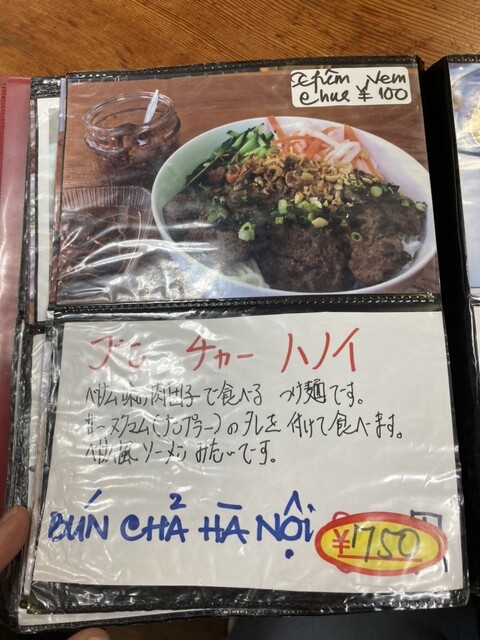 thêm Nem
chua ¥100
ブン チャー ハノイ
ベトナム味の肉団子で食べる つけ麺です。
ヌックマム(ナンプラー)のタレを付けて食べます。
ベトナム風ソーメンみたいです。
BÚN CHẢ HÀ NỘI
¥750